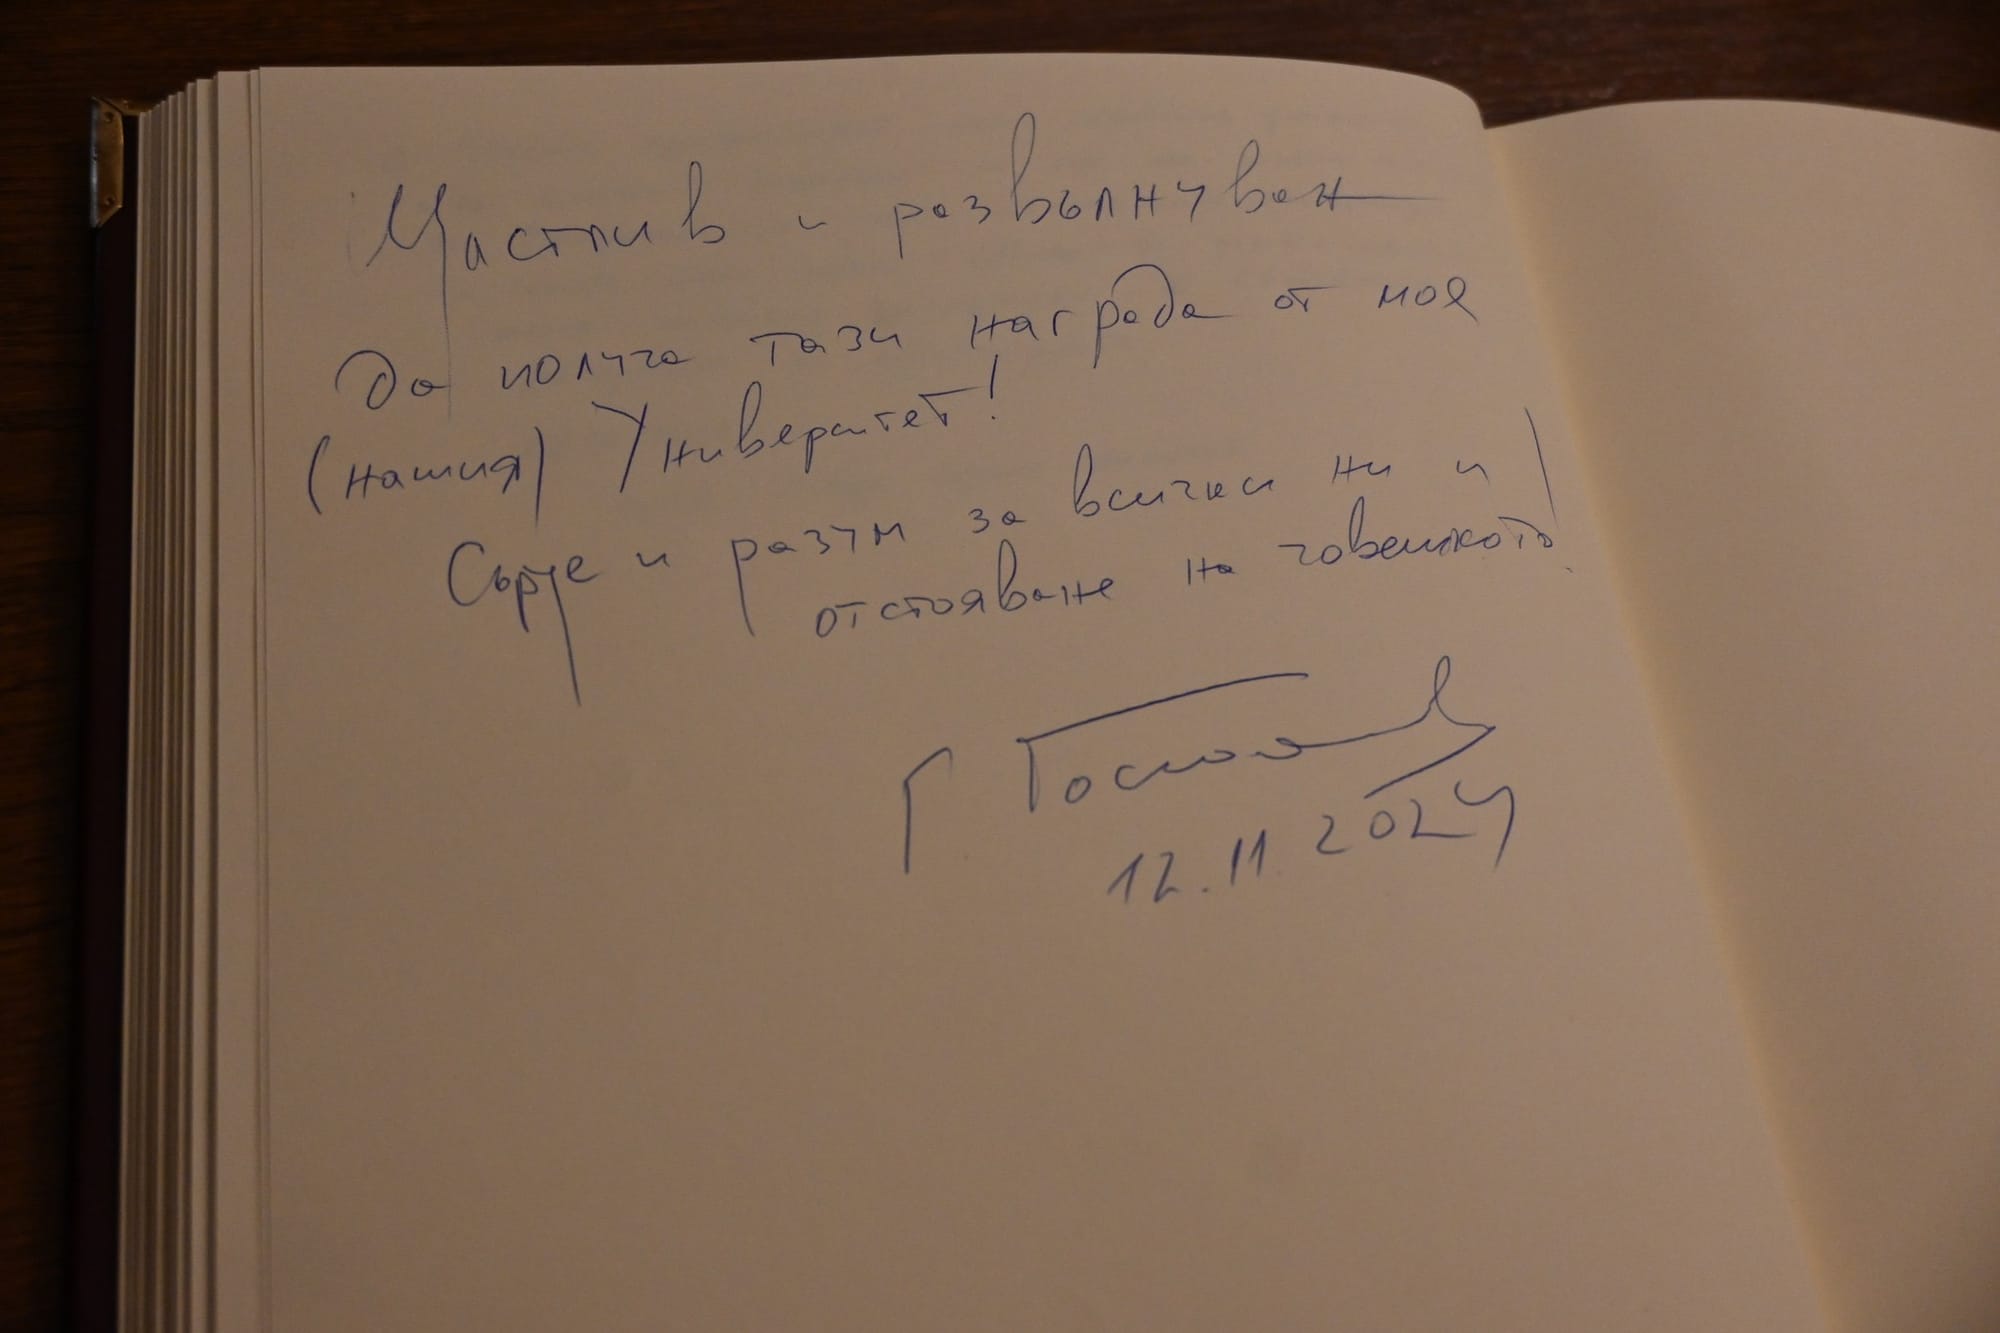 Щастлив и развълнуван
да получа тази награда от моя
(нашия) Университет!
Сърце и разум за всички ни и
отстояване на човешкото!
Г. Господинов
12.11.2024